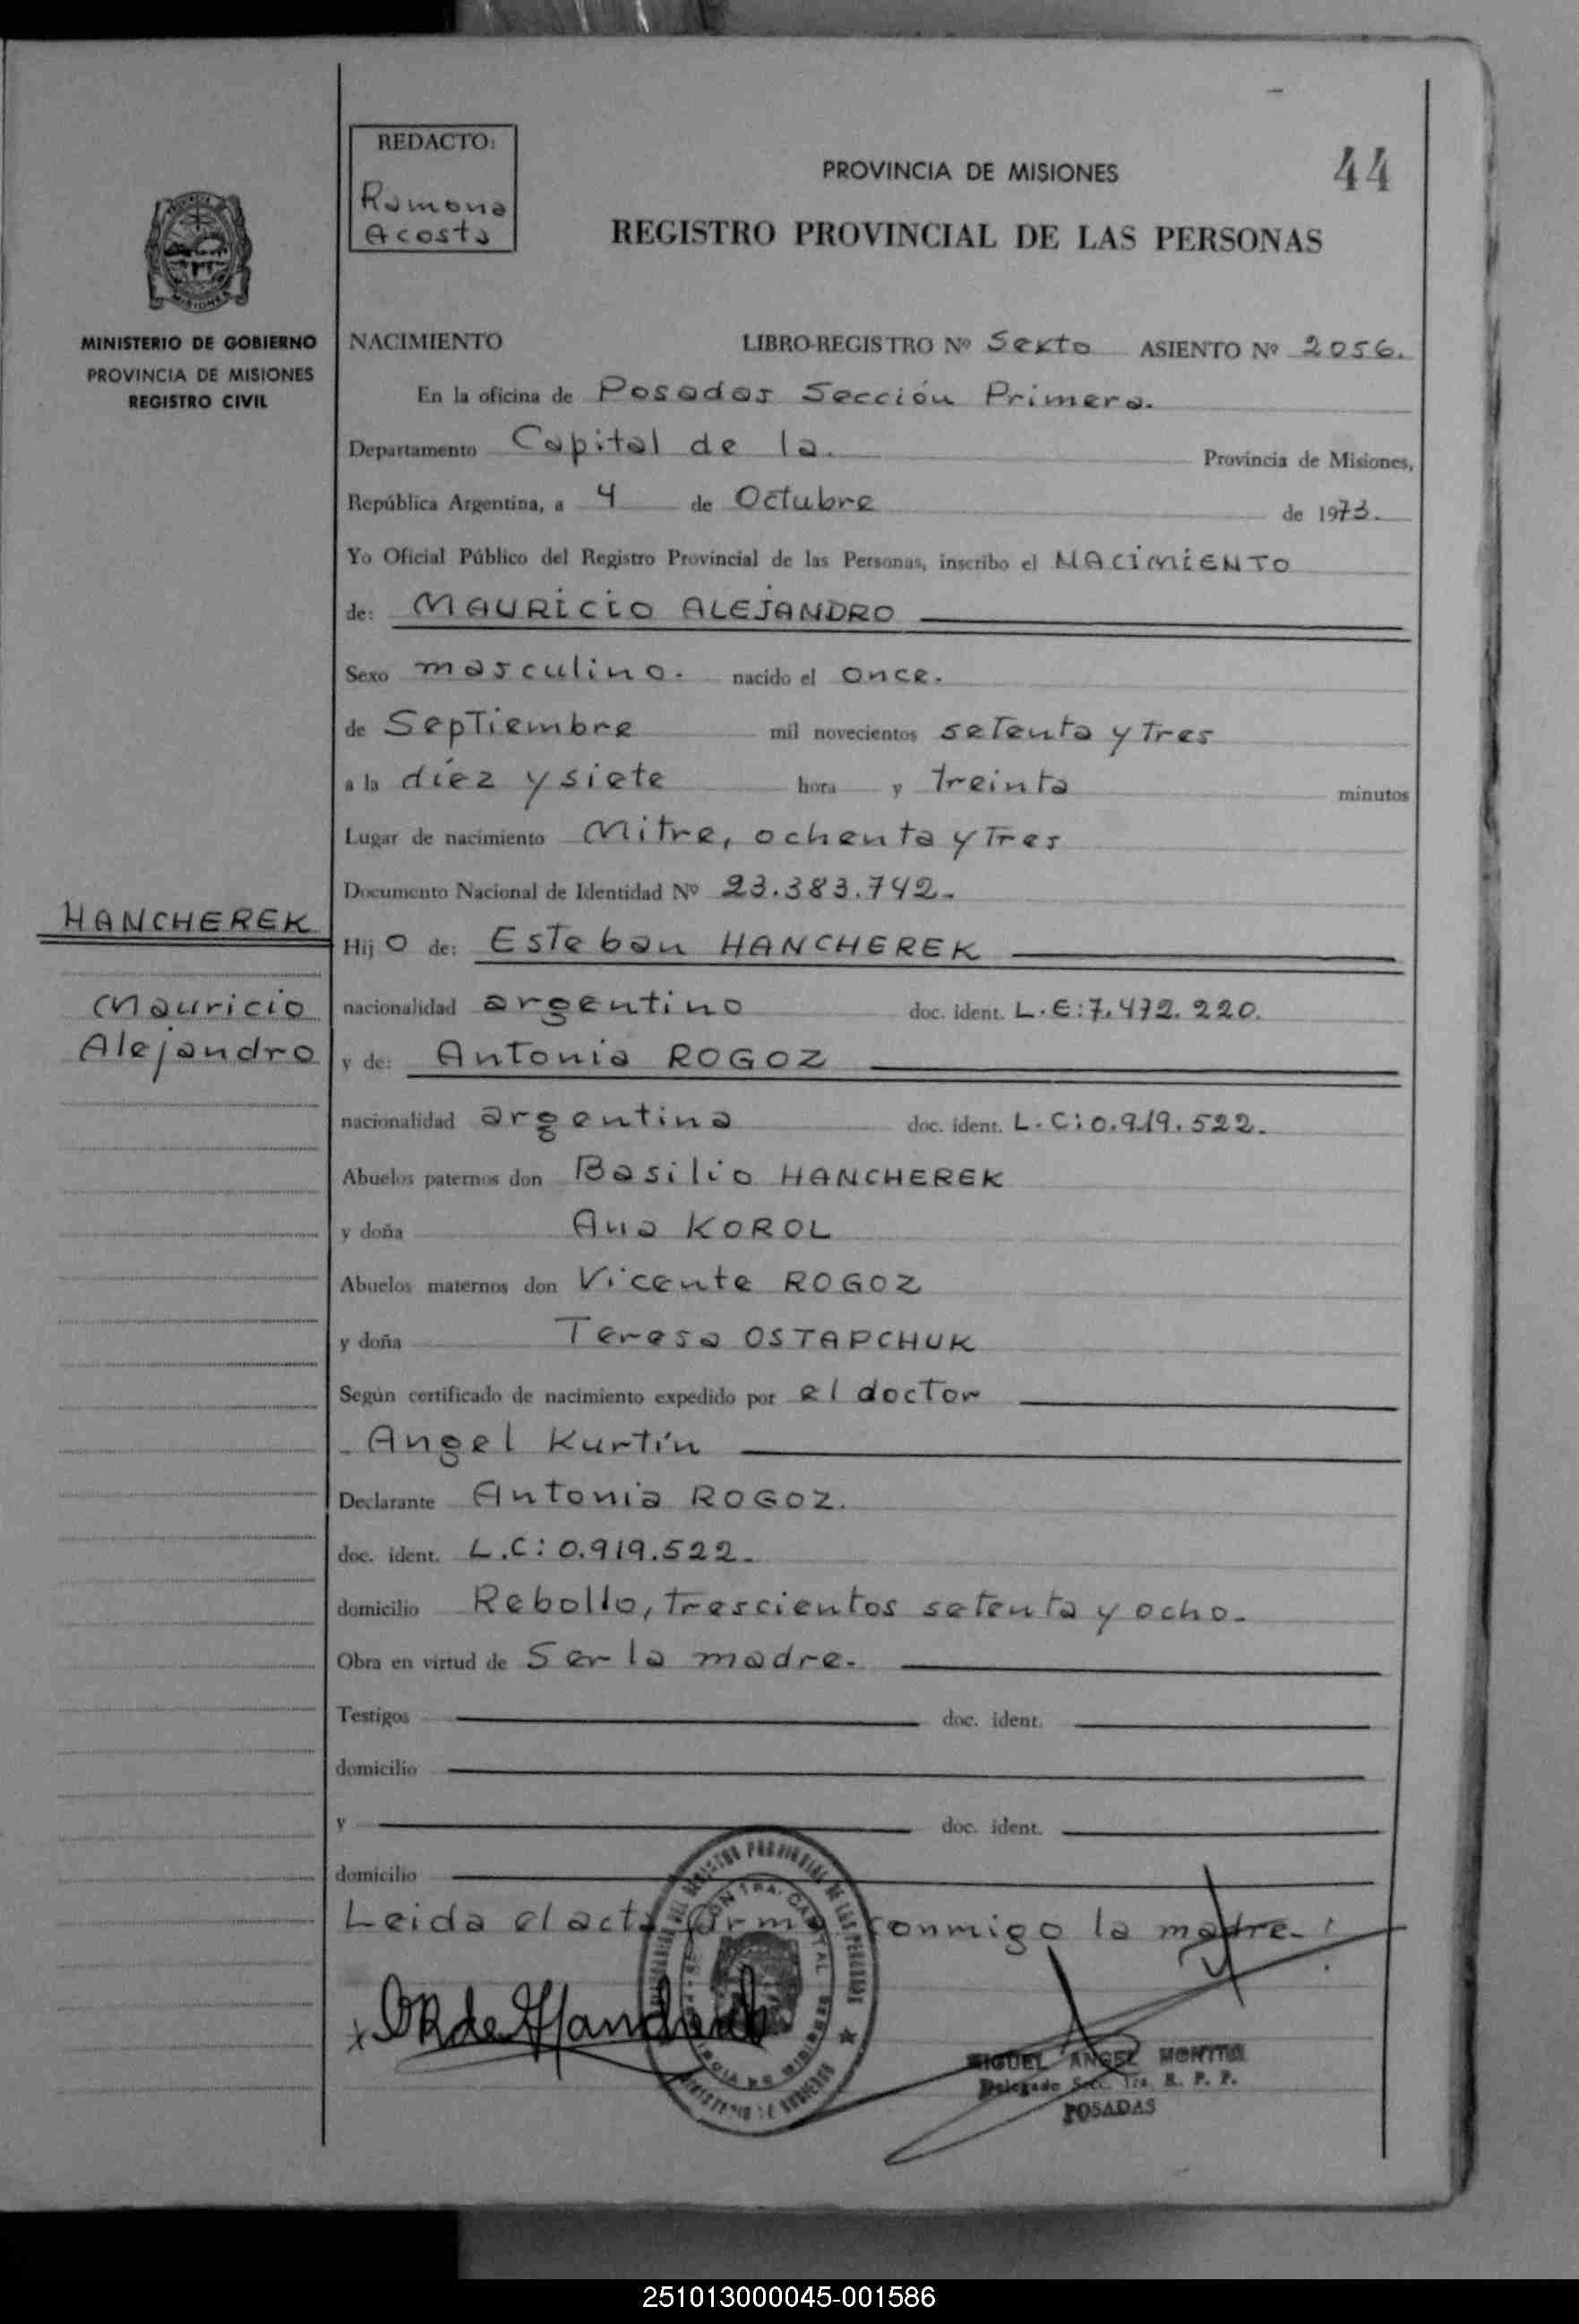 REDACTO:
Ramona
Acosta
44
PROVINCIA DE MISIONES
REGISTRO PROVINCIAL DE LAS PERSONAS
MISIONES
MINISTERIO DE GOBIERNO
PROVINCIA DE MISIONES
REGISTRO CIVIL
NACIMIENTO LIBRO-REGISTRO Nº Sexto ASIENTO Nº 2056.
En la oficina de Posadas Sección Primera.
Departamento Capital de la. Provincia de Misiones,
República Argentina, a 4 de Octubre de 1973.
Yo Oficial Público del Registro Provincial de las Personas, inscribo el NACIMIENTO
de: MAURICIO ALEJANDRO
Sexo masculino. nacido el once.
de Septiembre mil novecientos setenta y tres
a la diez y siete hora y treinta minutos
Lugar de nacimiento Mitre, ochenta y tres
Documento Nacional de Identidad Nº 23.383.742.
HANCHEREK
Hijo de: Esteban HANCHEREK
Mauricio
Alejandro
nacionalidad argentino doc. ident. L.E:7.472.220.
y de: Antonia ROGOZ
nacionalidad argentina doc. ident. L.C:0.919.522.
Abuelos paternos don Basilio HANCHEREK
y doña Ana KOROL
Abuelos maternos don Vicente ROGOZ
y doña Teresa OSTAPCHUK
Según certificado de nacimiento expedido por el doctor
Angel Kurtín
Declarante Antonia ROGOZ.
doc. ident. L.C: 0.919.522.
domicilio Rebollo, trescientos setenta y ocho.
Obra en virtud de Ser la madre.
Testigos doc. ident.
domicilio
y doc. ident.
domicilio
Leida el acta firma conmigo la madre.
MIGUEL ANGEL
Delegado Secc. 1ra. R. P. P.
POSADAS
251013000045-001586